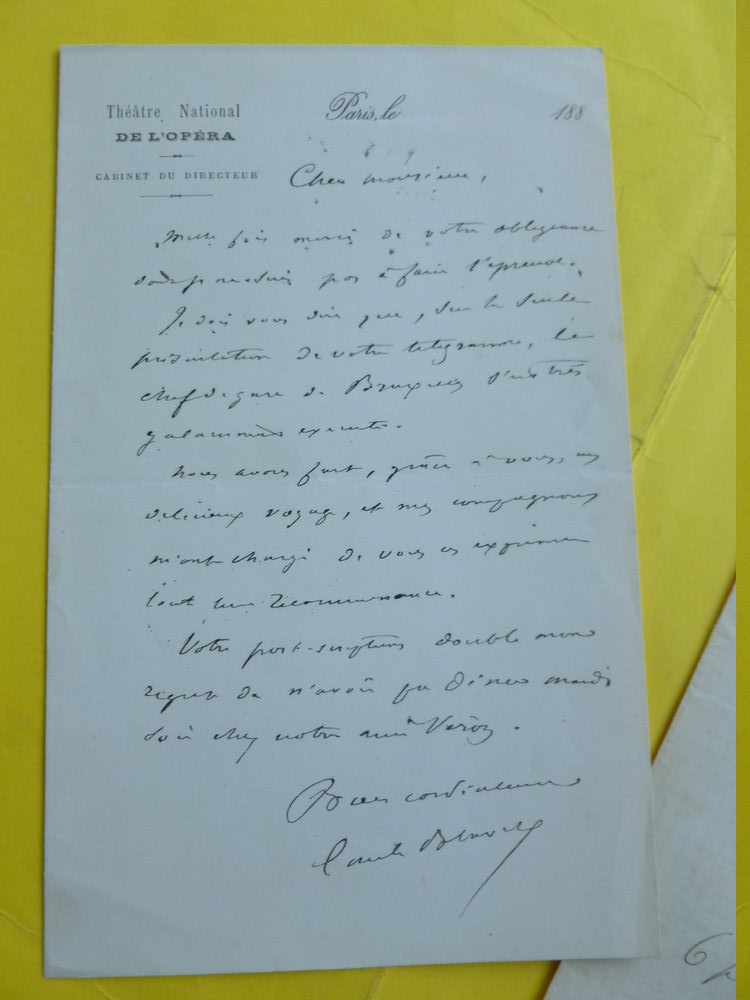 Théâtre National
DE L'OPÉRA
CABINET DU DIRECTEUR
Paris, le 188
Cher monsieur,
Mille fois merci de votre obligeance
dont je ne suis pas à faire l'épreuve.
Je dois vous dire que, sur la seule
présentation de votre telegramme, le
chef de gare de Bruxelles s'est très
galamment exécuté.
Nous avons fait, grâce à vous, un
délicieux voyage, et mes compagnons
m'ont chargé de vous en exprimer
tout leur reconnaissance.
Votre post-scriptum double mon
regret de n'avoir pu dîner mardi
soir chez notre ami
Bien cordialement
6